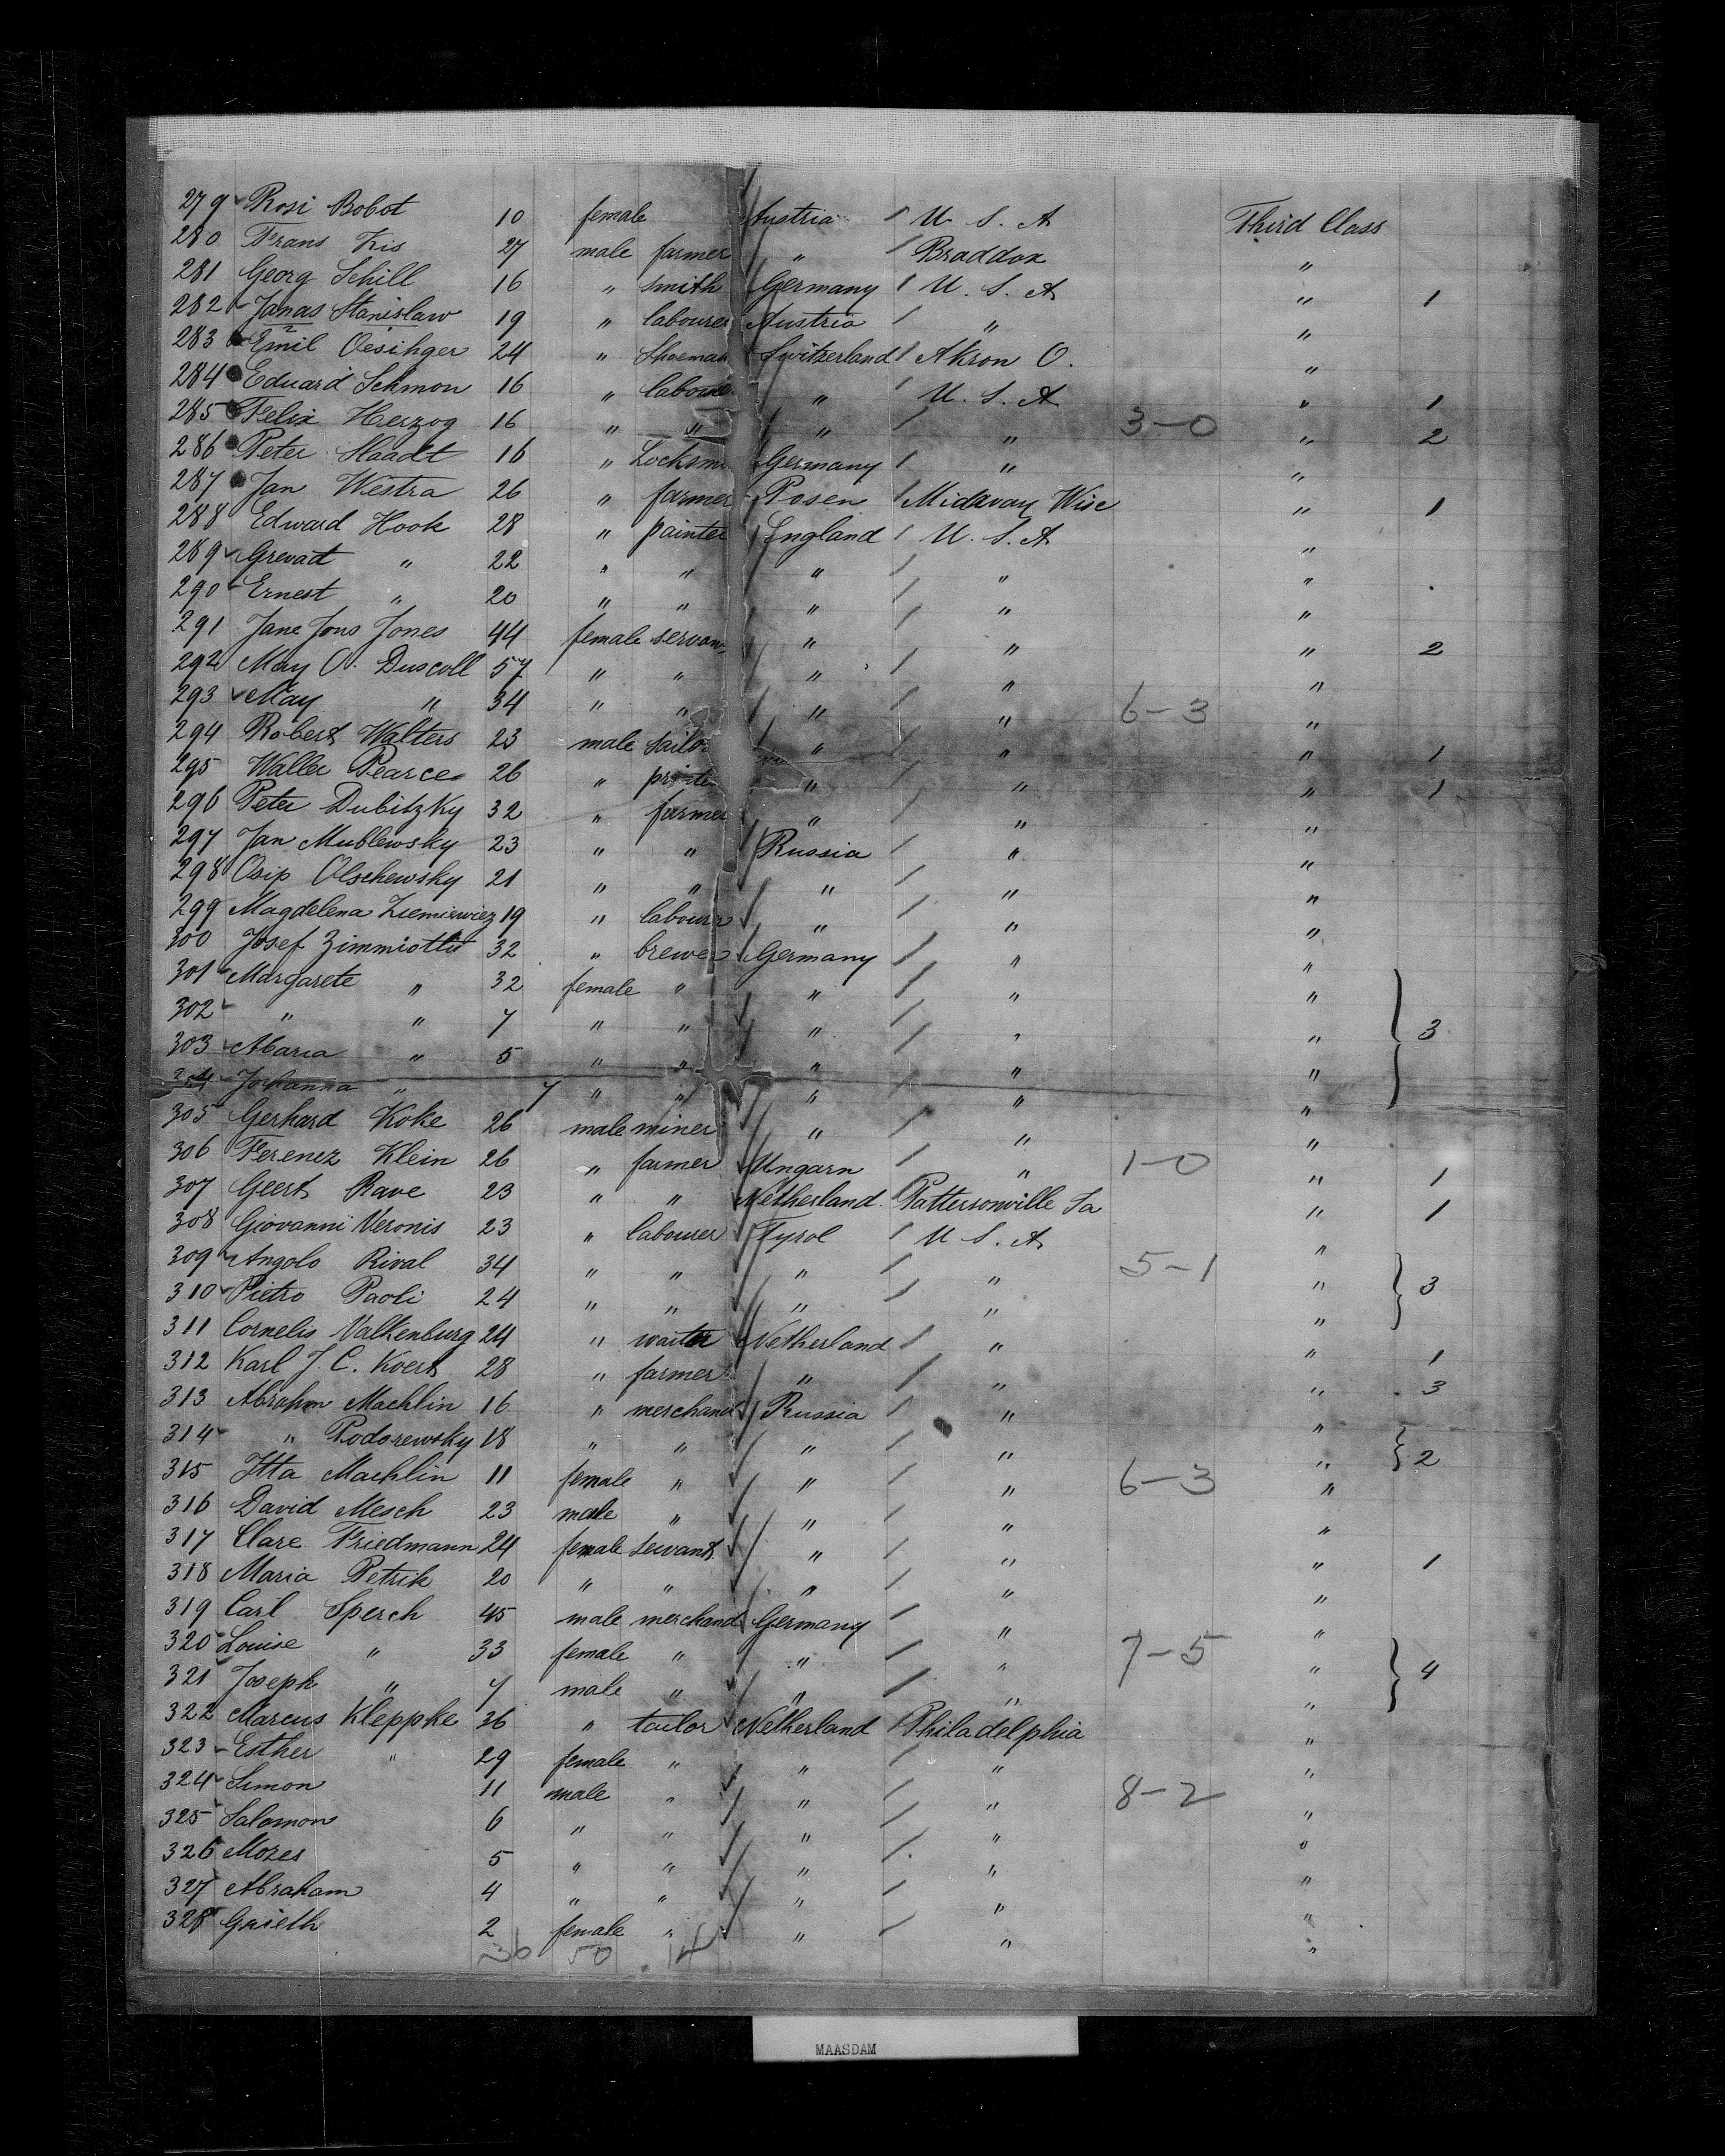 279 Rosi Bobot 10 female Austria / U. S. A Third Class
280 Frans Kis 27 male farmer " / Braddox "
281 Georg Schill 16 " smith Germany / U. S. A " 1
282 Janas Stanislaw 19 " labourer Austria / " "
283 Emil Oesihger 24 " Shoemak Switzerland / Akron O. "
284 Eduard Schmon 16 " laboure " / U. S. A " 1
285 Felix Herzog 16 " " " / " 3-0 " 2
286 Peter Staadt 16 " Locksmi Germany / " "
287 Jan Westra 26 " farmer Posen / Midavay Wisc " 1
288 Edward Hook 28 " painter England / U. S. A "
289 Grevatt " 22 " " " / " "
290 Ernest " 20 " " " / " "
291 Jane Jons Jones 44 female servan " / " " 2
292 May O. Duscoll 57 " " " / " "
293 May " 34 " " " / " 6-3 "
294 Robert Walters 23 male sailor " / " " 1
295 Walter Pearce 26 " printe " / " " 1
296 Peter Dubitzky 32 " farmer " / " "
297 Jan Mublewsky 23 " " Russia / " "
298 Osip Olschewsky 21 " " " / " "
299 Magdelena Ziemiewiez 19 " labourer " / " "
300 Josef Zimmiotti 32 " brewer Germany / " "
301 Margarete " 32 female " " / " "
302 " " 7 " " " / " " 3
303 Maria " 5 " " " / " "
304 Johanna " 7 " " " / " "
305 Gerhard Koke 26 male miner " / " "
306 Ferenez Klein 26 " farmer Ungarn / " 1-0 " 1
307 Geert Rave 23 " " Netherland / Pattersonville Ia " 1
308 Giovanni Veronis 23 " labourer Tyrol / U. S. A. "
309 Angolo Rival 34 " " " / " 5-1 " 3
310 Pietro Paoli 24 " " " / " "
311 Cornelis Valkenburg 24 " waiter Netherland / " " 1
312 Karl J. C. Koert 28 " farmer " / " " 3
313 Abrahm Machlin 16 " merchand Russia / " "
314 " Podorewsky 18 " " " / " " 2
315 Itta Machlin 11 female " " / " 6-3 "
316 David Mesch 23 male " " / " "
317 Clare Friedmann 24 female servant " / " " 1
318 Maria Petrik 20 " " " / " "
319 Carl Sperch 45 male merchand Germany / " "
320 Louise " 33 female " " / " 7-5 " 4
321 Joseph " 7 male " " / " "
322 Marcus Kleppke 36 " tailor Netherland / Philadelphia "
323 Esther " 29 female " " / " "
324 Simon 11 male " " / " 8-2 "
325 Salomon 6 " " " / " "
326 Mozes 5 " " " / " "
327 Abraham 4 " " " / " "
328 Grieth 2 female " " / " "
36 50 . 14
MAASDAM